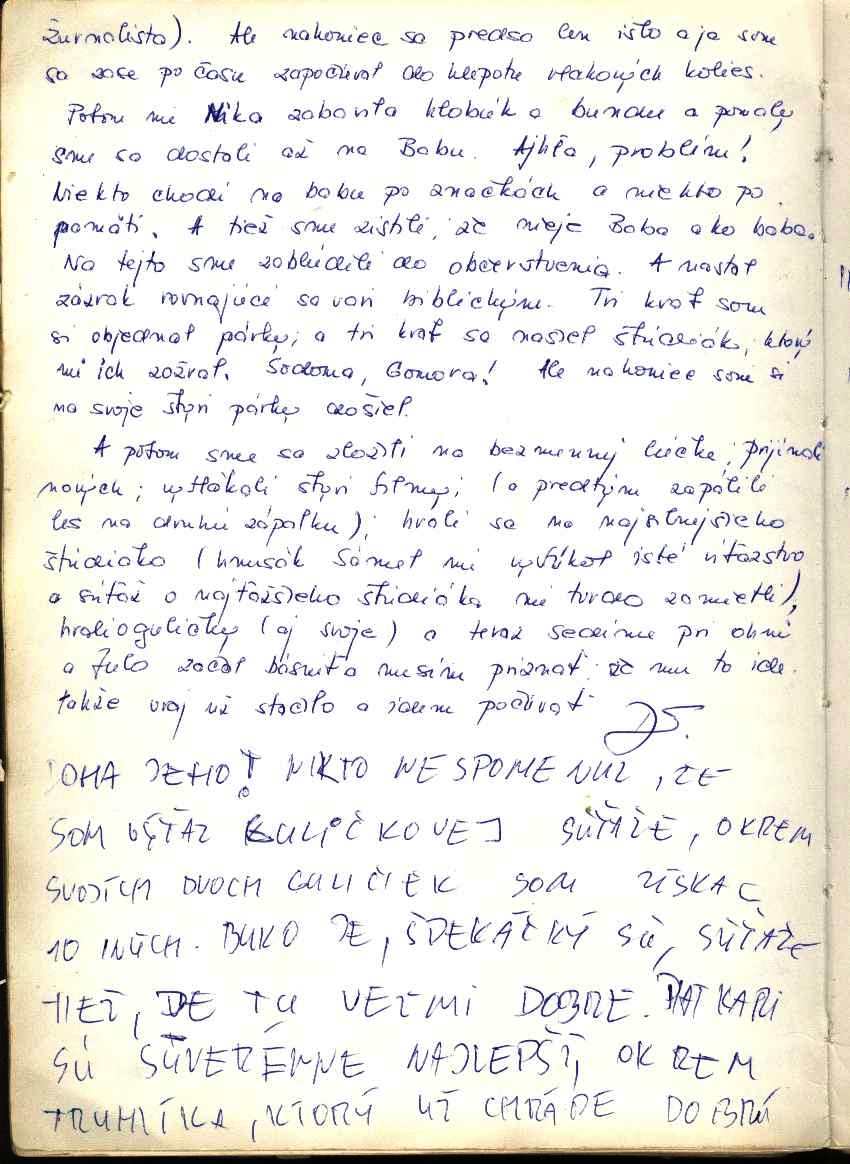 Žurnalista). Ale nakoniec sa predsa len išlo a ja som
sa zase po času započúval do klepotu vlakových kolies.
Potom mi Nika zobonla klobúk a bundu a pomaly
sme sa dostali až na Babu. Ajhľa, problém!
Niekto chodí na babu po značkách a niekto po
pamäti. A tiež sme zistili, že nieje Baba ako baba.
Na tejto sme zablúdili do občerstvenia. A nastal
zázrak rovnajúci sa vari biblickým. Tri krát som
si objednal párky; a tri krát sa našiel štúdiák, ktorý
mi ich zožral. Šodoma, Gomora! Ale nakoniec som si
na svoje štyri párky došiel.
A potom sme sa zložili na bezmennej lúčke; prijímali
nových; vytĺkali štyri filmy; (a predtým zapálili
les na druhú zápalku); hrali sa na najsilnejšieho
štúdiáka (hnusák Sámel mi vyfúkol isté víťazstvo
a súťaž o najťažšieho štúdiáka mi tvrdo zamietli),
hrali o guličky (aj svoje) a teraz sedíme pri ohni
a Julo začal básniť a musím priznať že mu to ide.
takže vraj už stačilo a idem počúvať
JOHA JEHO! NIKTO NESPOMENUL, ŽE
SOM VÍŤAZ GULIČKOVEJ SÚŤAŽE, OKREM
SVOJÍCH DVOCH GULIČIEK SOM ZÍSKAL
10 INÝCH. BUKO JE, ŠPEKÁČKY SÚ, SÚŤAŽE
TIEŽ, JE TU VEĽMI DOBRE. PATKARI
SÚ SUVERÉNNE NAJLEPŠÍ, OKREM
TRUHLÍKA, KTORÝ UŽ CHRÁPE DOBRÚ